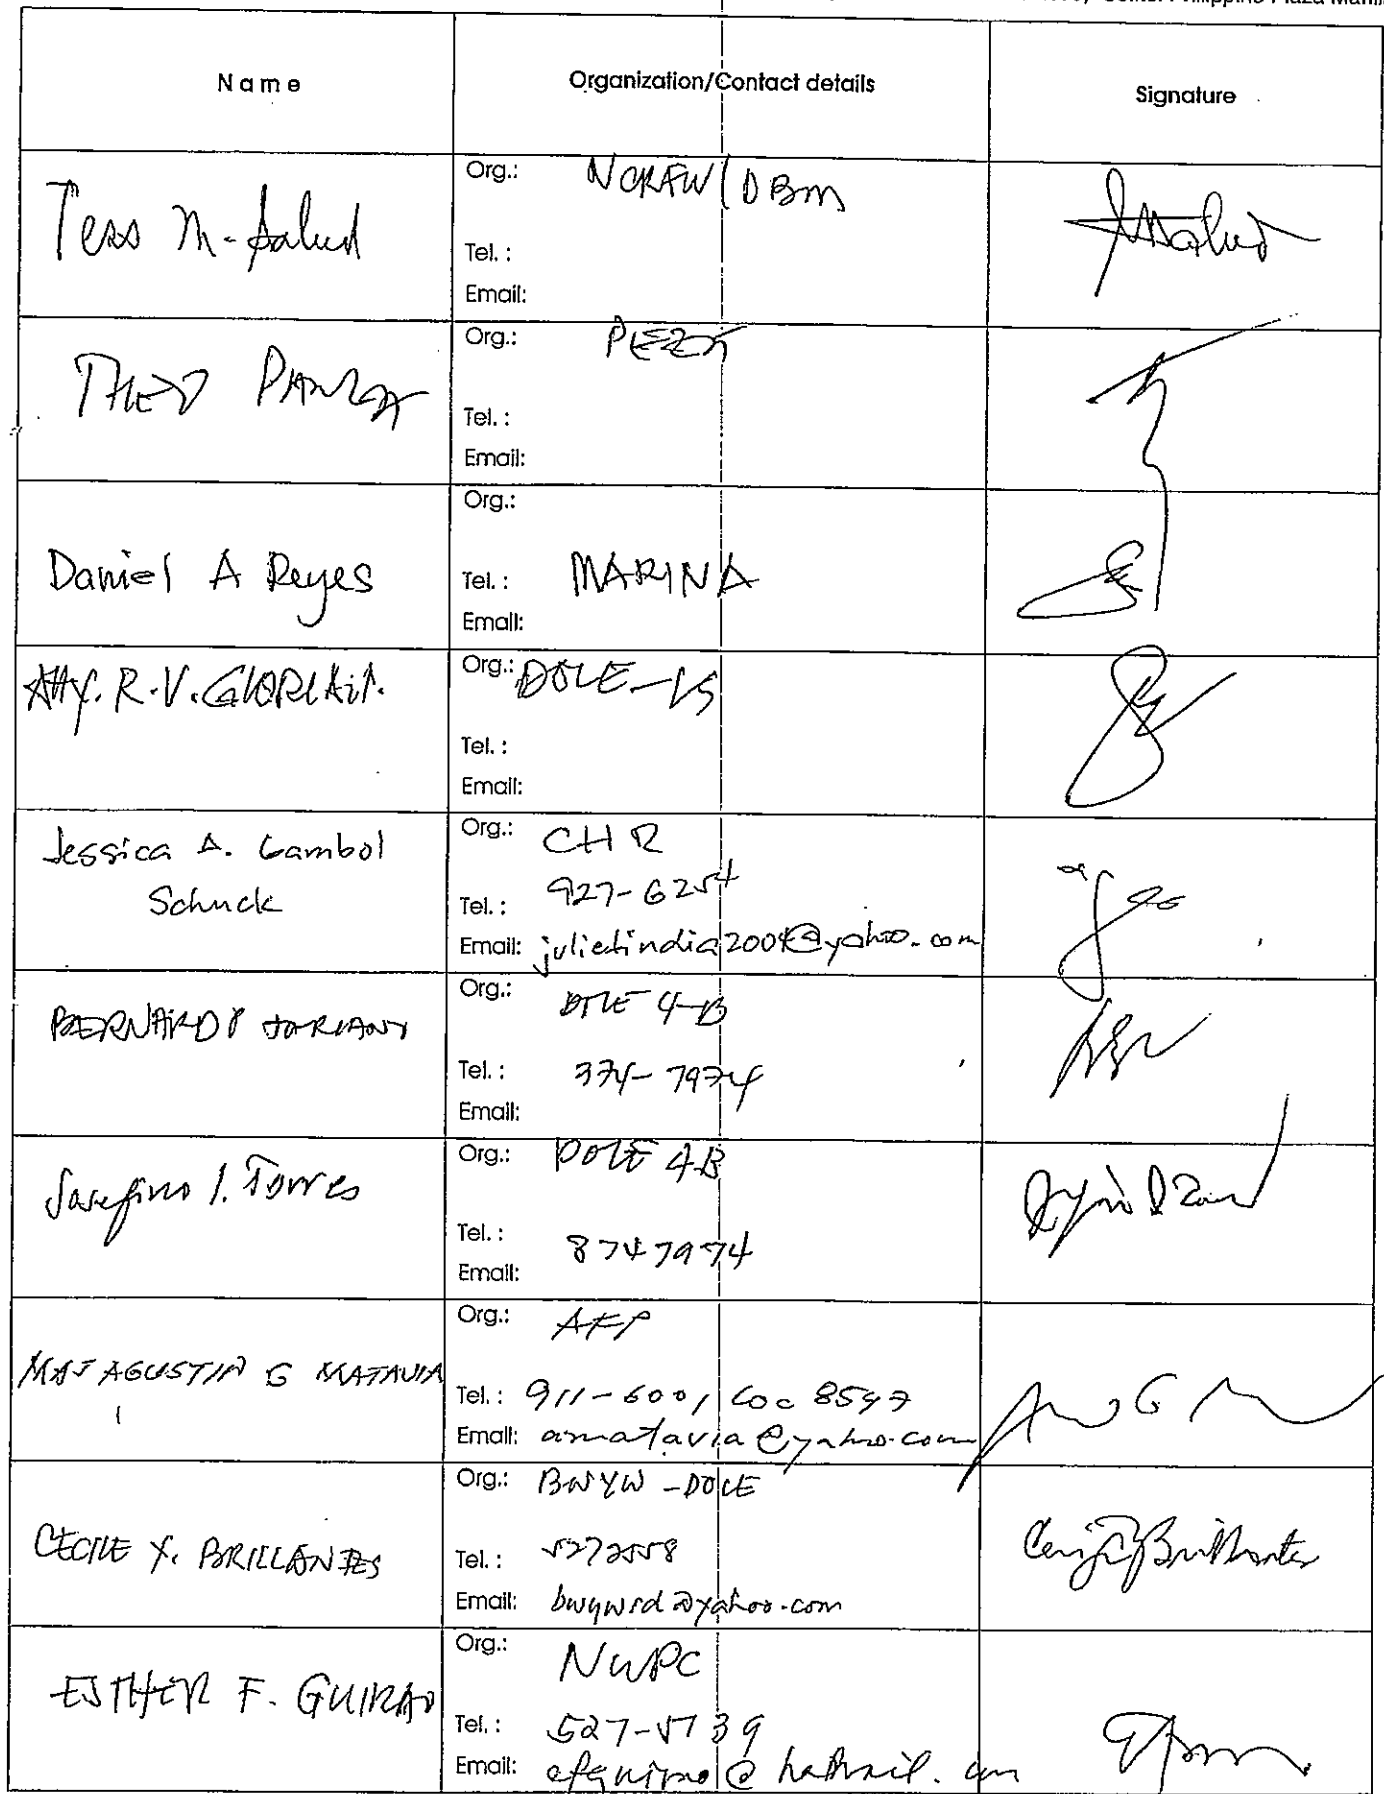 Philippine Plaza Manil
Name Organization/Contact details Signature
Tess M. Salud
Org.: NCRFW/DBM
Tel. :
Email:
THEO PANGA
Org.: PEZA
Tel. :
Email:
Daniel A Reyes
Org.:
Tel. : MARINA
Email:
Atty. R.V.
Org.: DOLE-
Tel. :
Email:
Jessica A. Gambol
Schuck
Org.: CHR
Tel. : 927-6254
Email: julietindia2004@yahoo.com
BERNARD P TORIANO
Org.: DOLE 4-B
Tel. : 374-7974
Email:
I. Torres
Org.: DOLE 4B
Tel. : 8747974
Email:
MAJ AGUSTIN G MATAVIA
Org.: AFP
Tel. : 911-6001 loc 8547
Email: amatavia@yahoo.com
CECILE Y. BRILLANTES
Org.: BWYW-DOLE
Tel. : 5272558
Email: bwywrd@yahoo.com
ESTHER F. GUIRAO
Org.: NWPC
Tel. : 527-5739
Email: